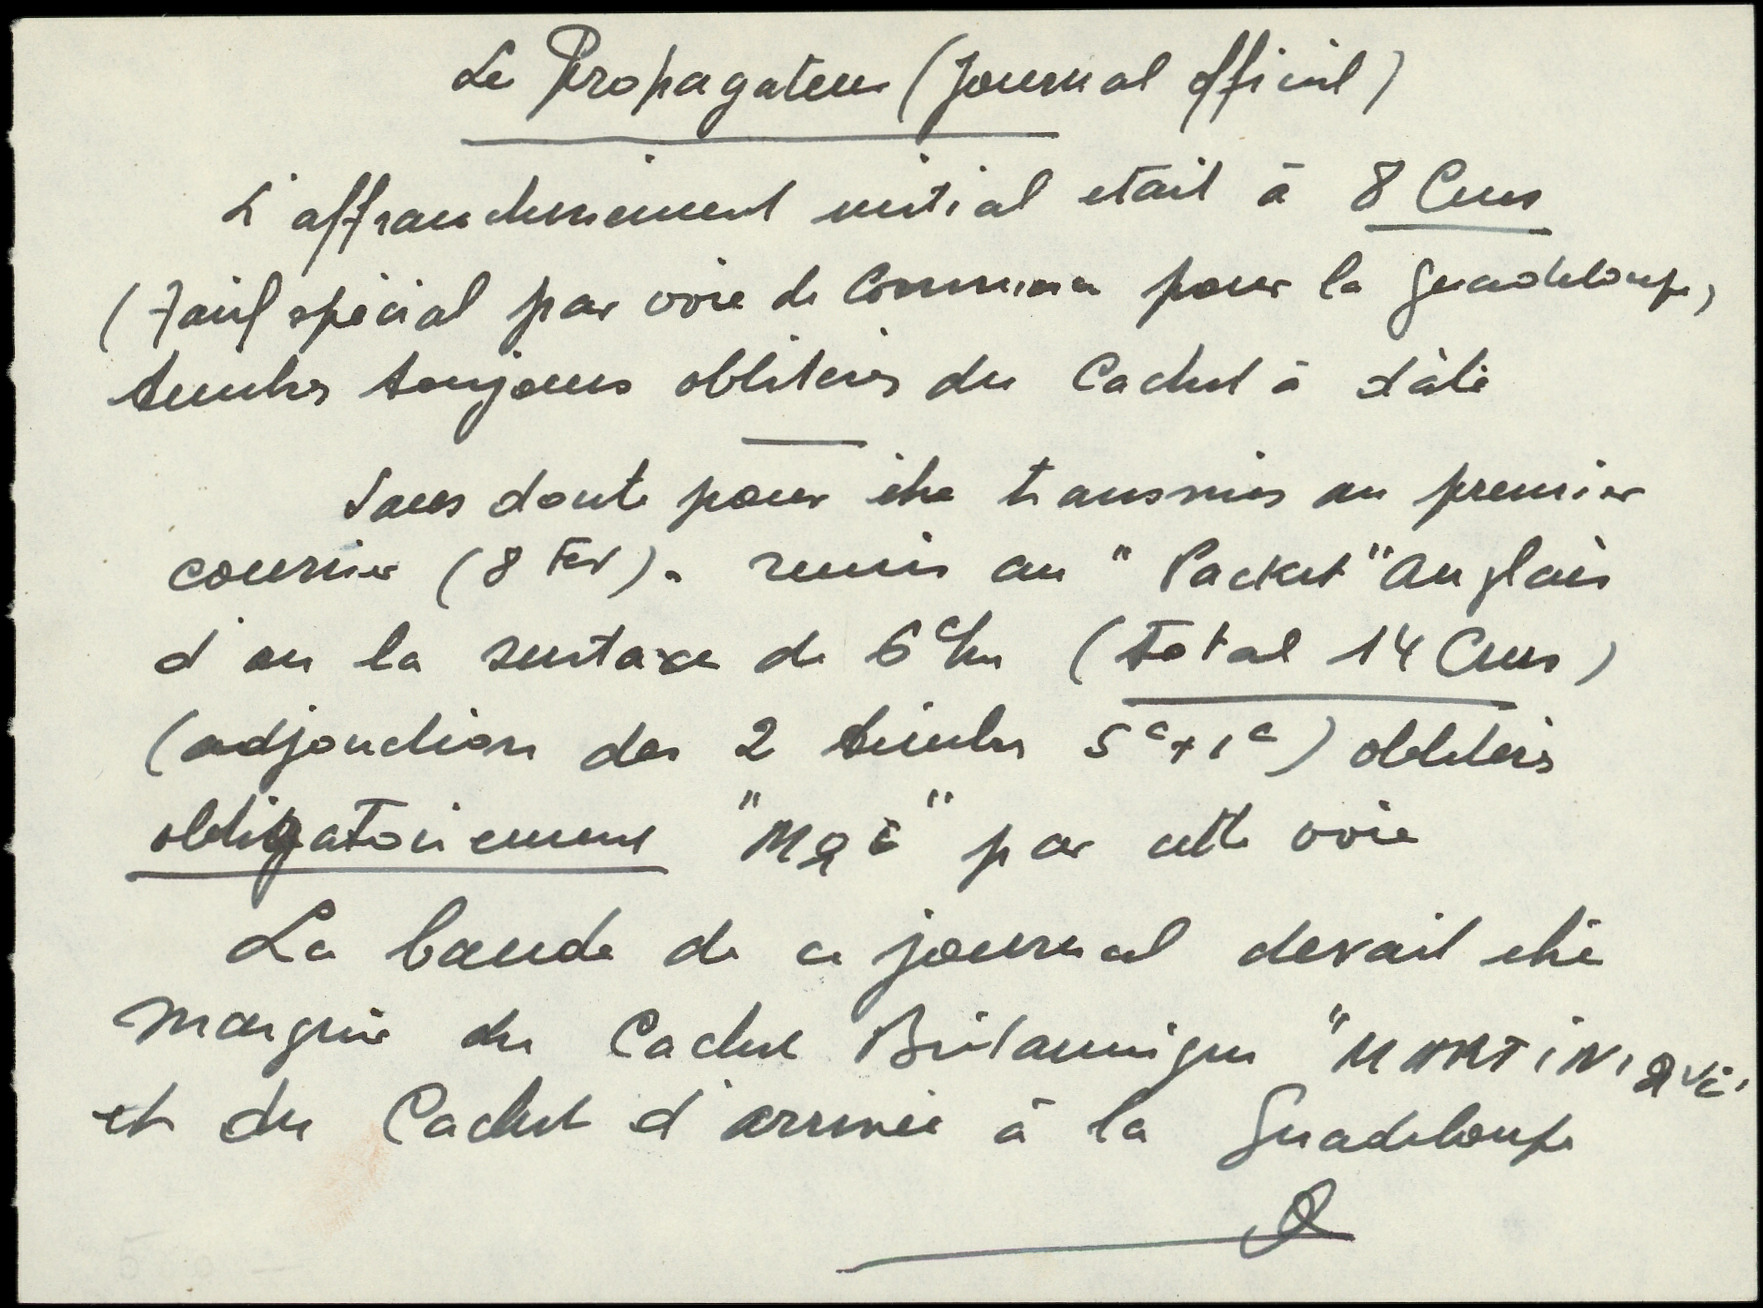 Le Propagateur (Journal officiel)
L'affranchissement initial etait à 8 Cmes
(Tarif spécial par voie de Commerce pour la Guadeloupe,
timbres toujours oblitérés du Cachet à date
Sans doute pour être transmis au premier
courrier (8 Fev). remis au "Packet" Anglais
d'ou la surtaxe de 6 cmes (total 14 Cmes)
(adjonction des 2 timbres 5c + 1c) oblitérés
obligatoirement "MQE" par cette voie
La bande de ce journal devait être
margée du Cachet Britannique "MARTINIQUE"
et du Cachet d'arrivée à la Guadeloupe